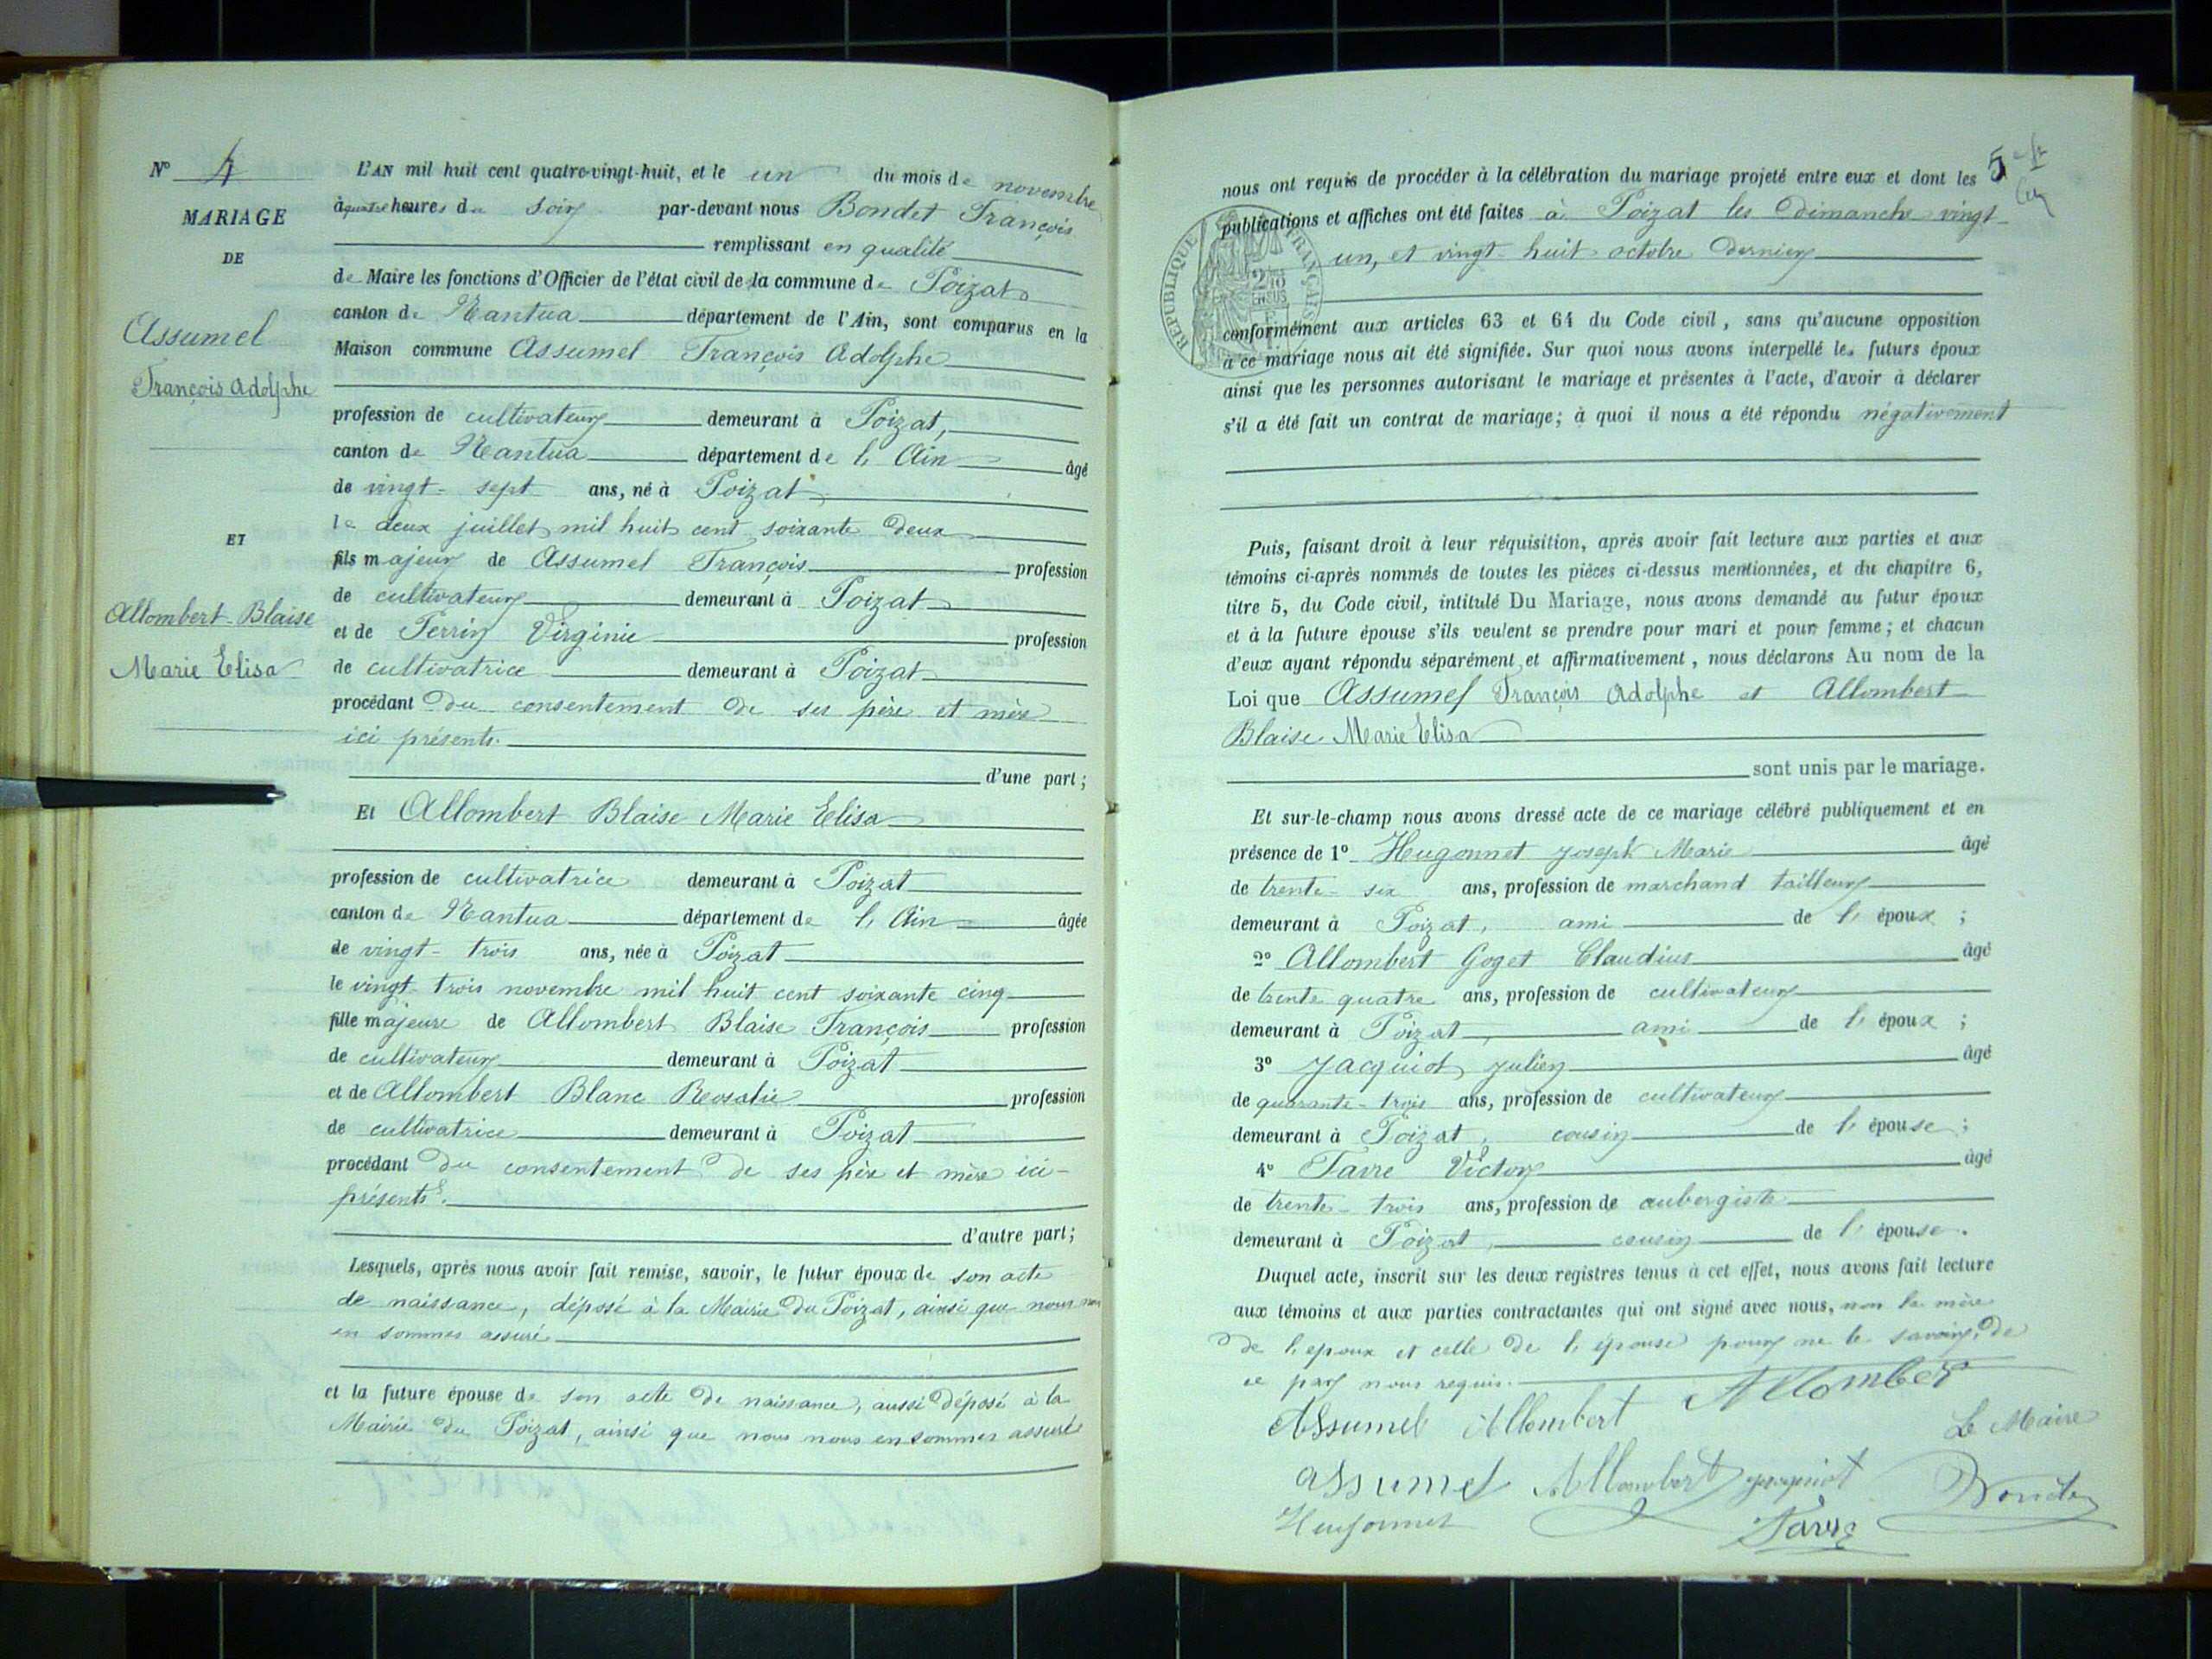 N° 4
MARIAGE
DE
Assumel
François Adolphe
ET
Allombert-Blaise
Marie Elisa
L'AN mil huit cent quatre-vingt-huit, et le un du mois de novembre
à quatre heures du soir par-devant nous Bondet François
remplissant en qualité
de Maire les fonctions d'Officier de l'état civil de la commune de Poizat
canton de Nantua département de l'Ain, sont comparus en la
Maison commune Assumel François Adolphe
profession de cultivateur demeurant à Poizat,
canton de Nantua département de l'Ain âgé
de vingt-sept ans, né à Poizat
le deux juillet mil huit cent soixante deux
fils majeur de Assumel François profession
de cultivateur demeurant à Poizat
et de Perrin Virginie profession
de cultivatrice demeurant à Poizat
procédant du consentement de ses père et mère
ici présents.
d'une part;
Et Allombert Blaise Marie Elisa
profession de cultivatrice demeurant à Poizat
canton de Nantua département de l'Ain âgée
de vingt-trois ans, née à Poizat
le vingt trois novembre mil huit cent soixante cinq
fille majeure de Allombert Blaise François profession
de cultivateur demeurant à Poizat
et de Allombert Blanc Rosalie profession
de cultivatrice demeurant à Poizat
procédant du consentement de ses père et mère ici-
présents.
d'autre part;
Lesquels, après nous avoir fait remise, savoir, le futur époux de son acte
de naissance, déposé à la Mairie du Poizat, ainsi que nous nous
en sommes assuré
et la future épouse de son acte de naissance, aussi déposé à la
Mairie du Poizat, ainsi que nous nous en sommes assuré
5
nous ont requis de procéder à la célébration du mariage projeté entre eux et dont les
publications et affiches ont été faites à Poizat les dimanche vingt-
un, et vingt-huit octobre dernier
RÉPUBLIQUE FRANÇAISE
conformément aux articles 63 et 64 du Code civil, sans qu'aucune opposition
à ce mariage nous ait été signifiée. Sur quoi nous avons interpellé les futurs époux
ainsi que les personnes autorisant le mariage et présentes à l'acte, d'avoir à déclarer
s'il a été fait un contrat de mariage; à quoi il nous a été répondu négativement
Puis, faisant droit à leur réquisition, après avoir fait lecture aux parties et aux
témoins ci-après nommés de toutes les pièces ci-dessus mentionnées, et du chapitre 6,
titre 5, du Code civil, intitulé Du Mariage, nous avons demandé au futur époux
et à la future épouse s'ils veulent se prendre pour mari et pour femme; et chacun
d'eux ayant répondu séparément et affirmativement, nous déclarons Au nom de la
Loi que Assumel François Adolphe et Allombert
Blaise Marie Elisa
sont unis par le mariage.
Et sur-le-champ nous avons dressé acte de ce mariage célébré publiquement et en
présence de 1° Hugonnet Joseph Marie âgé
de trente-six ans, profession de marchand tailleur
demeurant à Poizat, ami de l'époux;
2° Allombert Goget Claudius âgé
de trente quatre ans, profession de cultivateur
demeurant à Poizat, ami de l'époux;
3° Jacquiot Julien âgé
de quarante-trois ans, profession de cultivateur
demeurant à Poizat, cousin de l'épouse;
4° Favre Victor âgé
de trente-trois ans, profession de aubergiste
demeurant à Poizat, cousin de l'épouse.
Duquel acte, inscrit sur les deux registres tenus à cet effet, nous avons fait lecture
aux témoins et aux parties contractantes qui ont signé avec nous, non la mère
de l'époux et celle de l'épouse pour ne le savoir, de
ce par nous requis.
Assumel Allombert Allombert
Le Maire
assumel Allombert Jacquiot Bondet
Hugonnet Favre